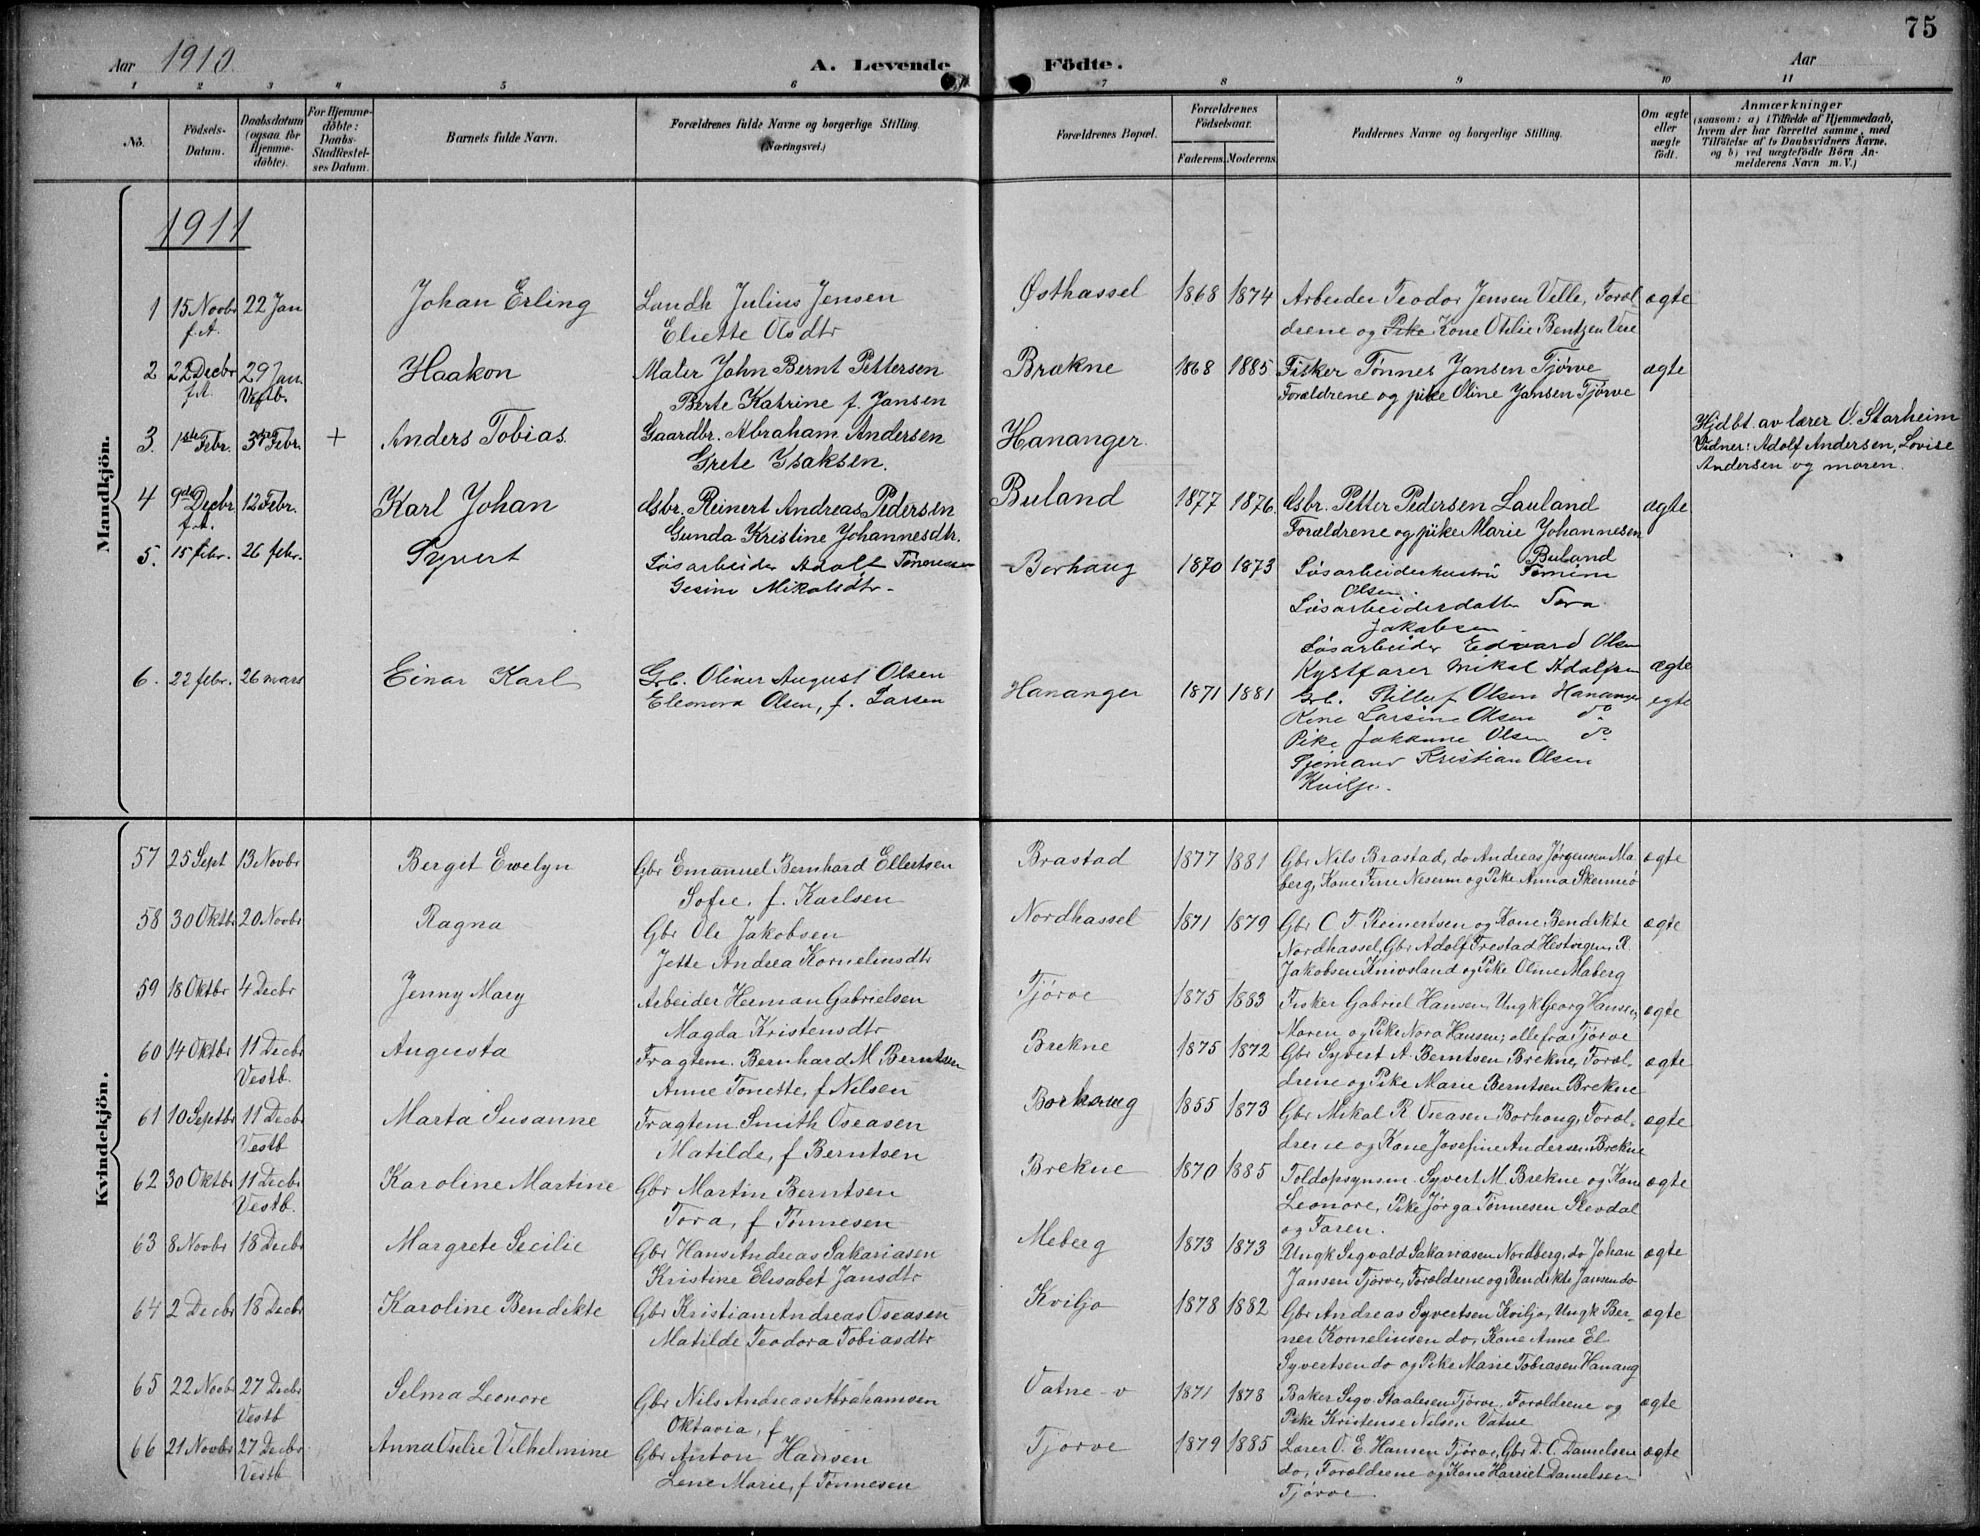 75
Aar 1910.
A. Levende Födte.
Aar
1 2 3 4 5 6 7 8 9 10 11
No.
Födsels-Datum.
Daabsdatum (ogsaa for Hjemme-döbte).
For Hjemme-döbte: Daabs-Stadfæstel-ses Datum.
Barnets fulde Navn.
Forældrenes fulde Navne og borgerlige Stilling. (Næringsvei.)
Forældrenes Bopæl.
Forældrenes Födselsaar.
Faderens. Moderens.
Faddernes Navne og borgerlige Stilling.
Om ægte eller uægte födt.
Anmærkninger
(saasom: a) i Tilfælde af Hjemmedaab,
hvem der har forrettet samme, med
Tilföielse af to Daabsvidners Navne,
og b) ved uægtefödte Börn An-
melderens Navn m. V.)
Mandkjön.
1911
1 15 Novbr f.A. 22 Jan Johan Erling
Landh Julius Jensen
Eliette Olsdtr
Østhassel 1868 1874
Arbeider Teodor Jensen Velle, Foræl
drene og Pike Kone Otilie Bentzen Vere
ægte
2 22 Decbr f.A. 29 Jan. Vestb. Haakon
Maler John Bernt Pettersen
Berte Katrine f. Jansen
Brækne 1868 1885
Fisker Tønnes Jansen Tjørve
Forældrene og pike Oline Jansen Tjørve
ægte
3. 1ste Febr. 3die Febr. + Anders Tobias
Gaardbr. Abraham Andersen
Grete Isaksen.
Hananger.
Hjdbt. av lærer O. Starheim
Vidner: Adolf Andersen, Lovise
Andersen og moren.
4 9de Decbr f.A. 12 Febr. Karl Johan
Gsbr. Reinert Andreas Pedersen
Gunda Kristine Johannesdtr.
Buland 1877 1876.
Gsbr. Petter Pedersen Lauland
Forældrene og pike Marie Johannesen
Buland
ægte
5. 15 febr. 26 febr. Syvert
Løsarbeider Adolf Tønnessen
Gesine Mikalsdtr-
Borhaug 1870 1873
Løsarbeiderhustru Tomine
Olsen.
Løsarbeidersdatter Tora
Jakobsen
Løsarbeider Edvard Olsen
Kystfarer Mikal Adolfsen
ægte
6. 22 febr. 26 mars Einar Karl
Grb. Oliver August Olsen
Eleonora Olsen, f. Larsen
Hananger 1871 1881
Grb. Olsen Hananger
Kone Larsine Olsen do
Pike Johanne Olsen do
Sjømand Kristian Olsen
Kvilje.
egte
Kvindekjön.
57 25 Sept 13 Novbr Berget Ewelyn
Gbr Emanuel Bernhard Ellertsen
Sofie, f. Karlsen
Brastad 1877 1881
Gbr Nils Brastad, do Andreas Jørgensen Ma
berg, Kone Tine Nesem og Pike Anna
ægte
58 30 Oktbr 20 Novbr Ragna
Gbr Ole Jakobsen
Jette Andrea Korneliusdtr
Nordhassel 1871 1879
Gbr C. T. Reinertsen og Kone Bendikte
Nordhassel, Gbr Adolf Frestad Hestvigen, R.
Jakobsen Knivsland og Pike Oline Maberg
ægte
59 18 Oktbr 4 Decbr Jenny Mary
Arbeider Herman Gabrielsen
Magda Kristensdtr
Tjørve 1875 1883
Fisker Gabriel Hansen, Ungk Georg Hansen,
Moren og Pike Nora Hansen; alle fra Tjørve
ægte
60 14 Oktbr 11 Decbr Vestb. Augusta
Fragtem. Bernhard M. Berntsen
Anne Tonette, f Nilsen
Brekne 1875 1872
Gbr Syvert A. Berntsen Brekne, Foræl-
drene og Pike Marie Berntsen Brekne
ægte
61 10 Septbr 11 Decbr Vestb Marta Susanne
Fragtem Smith Oseasen
Matilde, f Berntsen
Borhaug 1855 1873
Gbr Mikal R Oseasen Borhaug, Foræl-
drene og Kone Josefine Andersen Brekne
ægte
62 30 Oktbr 11 Decbr Vestb. Karoline Martine
Gbr Martin Berntsen
Tora, f Tønnesen
Brekne 1870 1885
Toldopsynsm. Syvert M. Brekne og Kone
Leonore, Pike Jørga Tønnesen Slevdal
og Faren.
ægte
63 8 Novbr 18 Decbr Margrete Secilie
Gbr Hans Andreas Sakariasen
Kristine Elisabet Jansdtr
Meberg 1873 1873
Ungk Sigvald Sakariasen Nordberg, do Johan
Jansen Tjørve, Forældrene og Bendikte Jansen do
ægte
64 2 Decbr 18 Decbr Karoline Bendikte
Gbr Kristian Andreas Oseasen
Matilde Teodora Tobiasdtr
Kviljo 1878 1882
Gbr Andreas Syvertsen Kviljo, Ungk Ber-
ner Korneliusen do, Kone Anne El.
Syvertsen do og Pike Marie Tobiasen Hanang
ægte
65 22 Novbr 27 Decbr Vestb Selma Leonore
Gbr Nils Andreas Abrahamsen
Oktavia, f
Vatne - v 1871 1878
Baker Sigv. Staalesen Tjørve, Forældrene og
Pike Kristense Nilsen Vatne
ægte
66 21 Novbr 27 Decbr Vestb Anna Oselie Vilhelmine
Gbr Anton Hansen
Lene Marie, f Tønnesen
Tjørve 1879 1885
Lærer O. E. Hansen Tjørve, Gbr D. C. Danielsen
do, Forældrene og Kone Harriet Danielsen
Tjørve
ægte